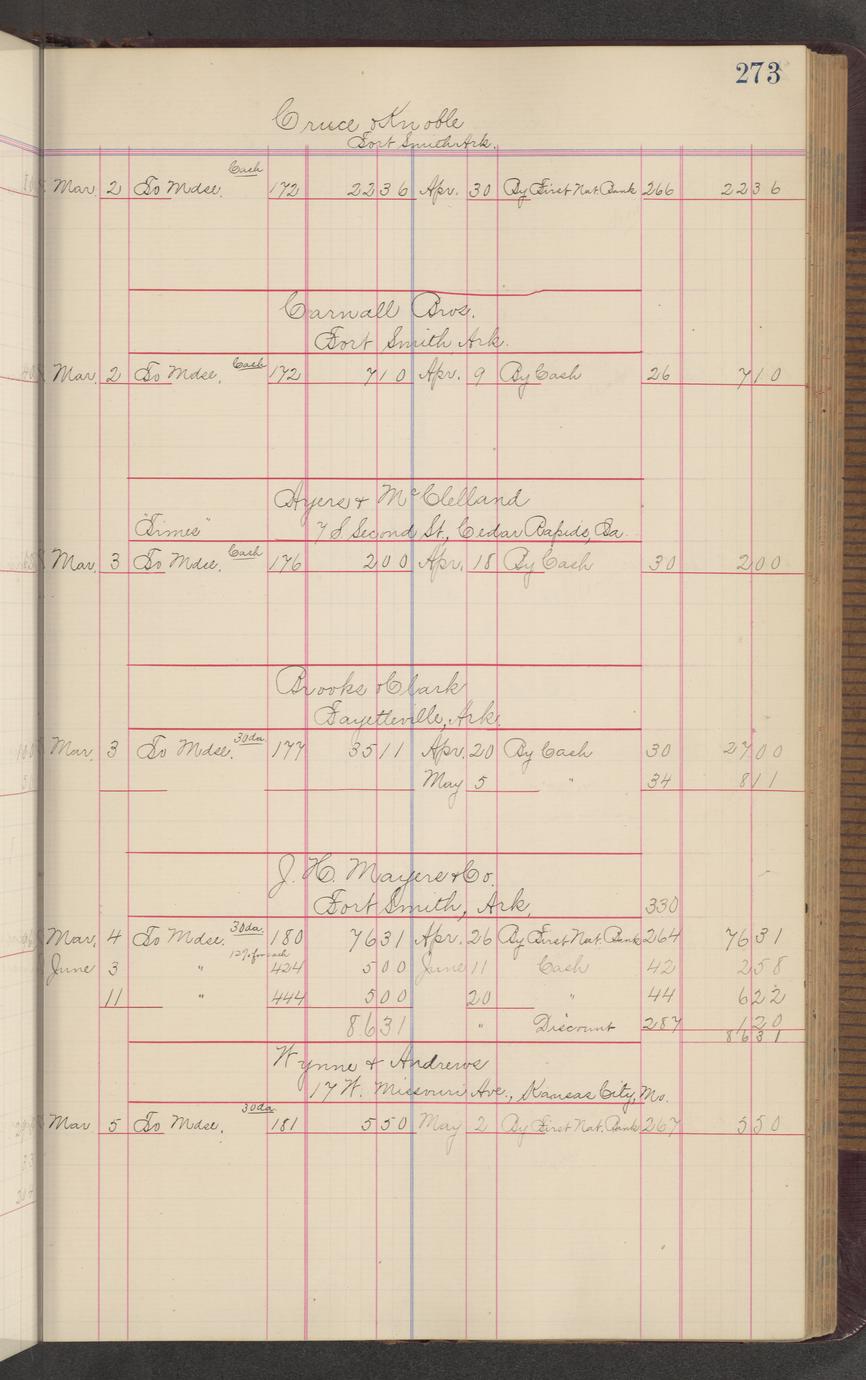 273
Cruce & Knoble
Fort Smith Ark.
Mar. 2 To Mdse. Cash 172 2236 Apr. 30 By First Nat. Bank 266 2236
Carnall Bros.
Fort Smith Ark.
Mar. 2 To Mdse. Cash 172 710 Apr. 9 By Cash 26 710
Ayers & McClelland
"Times" 7 S Second St., Cedar Rapids, Ia.
Mar. 3 To Mdse. Cash 176 200 Apr. 18 By Cash 30 200
Brooks & Clark
Fayetteville, Ark.
Mar. 3 To Mdse. 30da. 177 3511 Apr. 20 By Cash 30 2700
May 5 " 34 811
J. H. Mayers & Co.
Fort Smith, Ark. 330
Mar. 4 To Mdse. 30da. 180 7631 Apr. 26 By First Nat. Bank 264 7631
June 3 " 12% for cash 424 500 June 11 Cash 42 258
11 " 444 500 20 " 44 622
8631 " Discount 287 120
8631
Wynne & Andrews
17 W. Missouri Ave., Kansas City, Mo.
Mar 5 To Mdse. 30da. 181 550 May 2 By First Nat. Bank 267 550